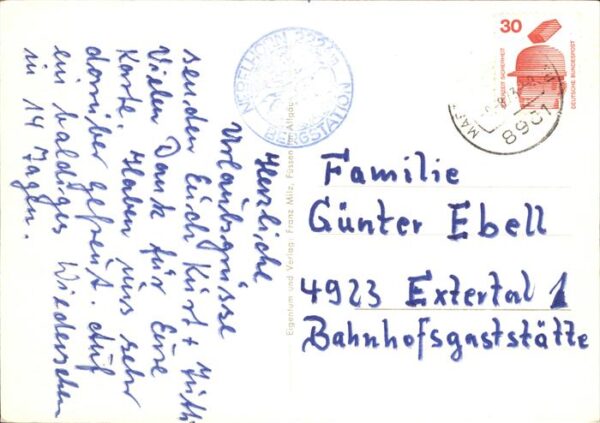 Herzliche
Urlaubsgrüsse
senden Euch Kurt +
Vielen Dank für Eure
Karte. Haben uns sehr
darüber gefreut. Auf
ein baldiges Wiedersehen
in 14 Tagen.
NEBELHORN 2224 m
BERGSTATION
Eigentum und Verlag: Franz Milz, Füssen im Allgäu
30
JEDERZEIT SICHERHEIT
DEUTSCHE BUNDESPOST
8967
Familie
Günter Ebell
4923 Extertal 1
Bahnhofsgaststätte